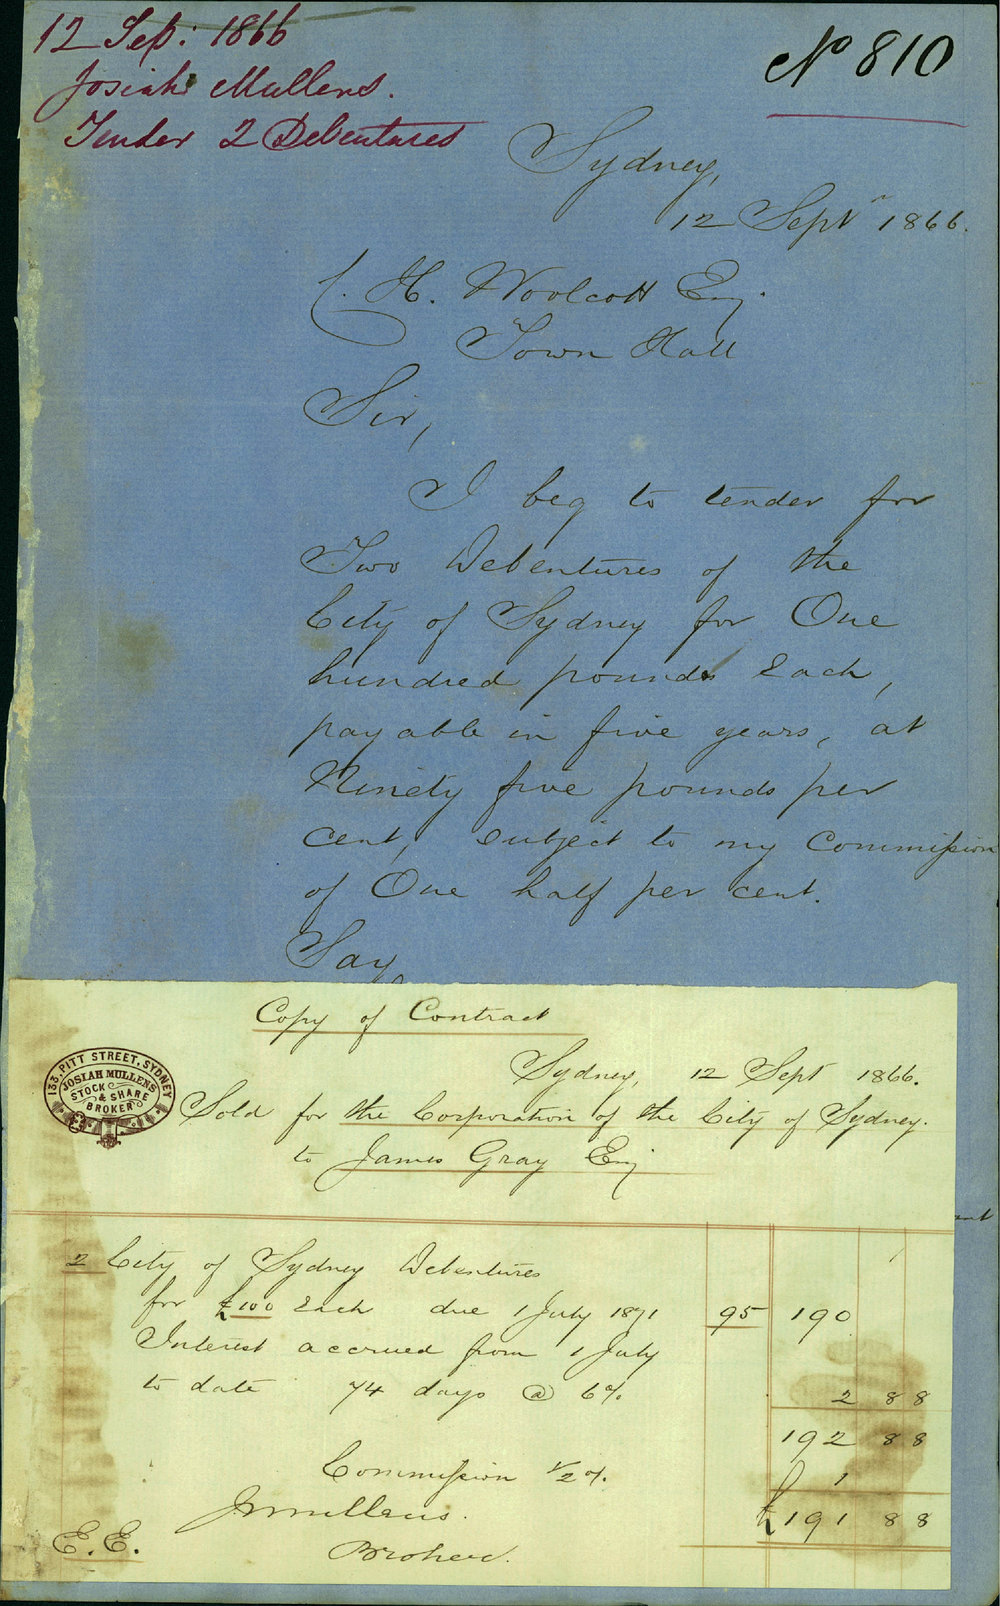 12 Sep: 1866
Josiah Mullens.
Tender 2 Debentures
No 810
Sydney,
12 Septr 1866.
C. H. Woolcott Esq.
Town Hall
Sir,
I beg to tender for
Two Debentures of the
City of Sydney for One
hundred pounds each,
payable in five years, at
Ninety five pounds per
cent, subject to my Commission
of One half per cent.
Say
Copy of Contract
133, PITT STREET, SYDNEY
JOSIAH MULLENS
STOCK
& SHARE
BROKER
Sydney, 12 Sept 1866.
Sold for the Corporation of the City of Sydney.
to James Gray Esq
2 City of Sydney Debentures
for £100 each due 1 July 1871 95 190
Interest accrued from 1 July
to date 74 days @ 6% 2 8 8
192 8 8
Commission 1/2 %. 1
£191 8 8
J Mullens.
E. E. Broker.